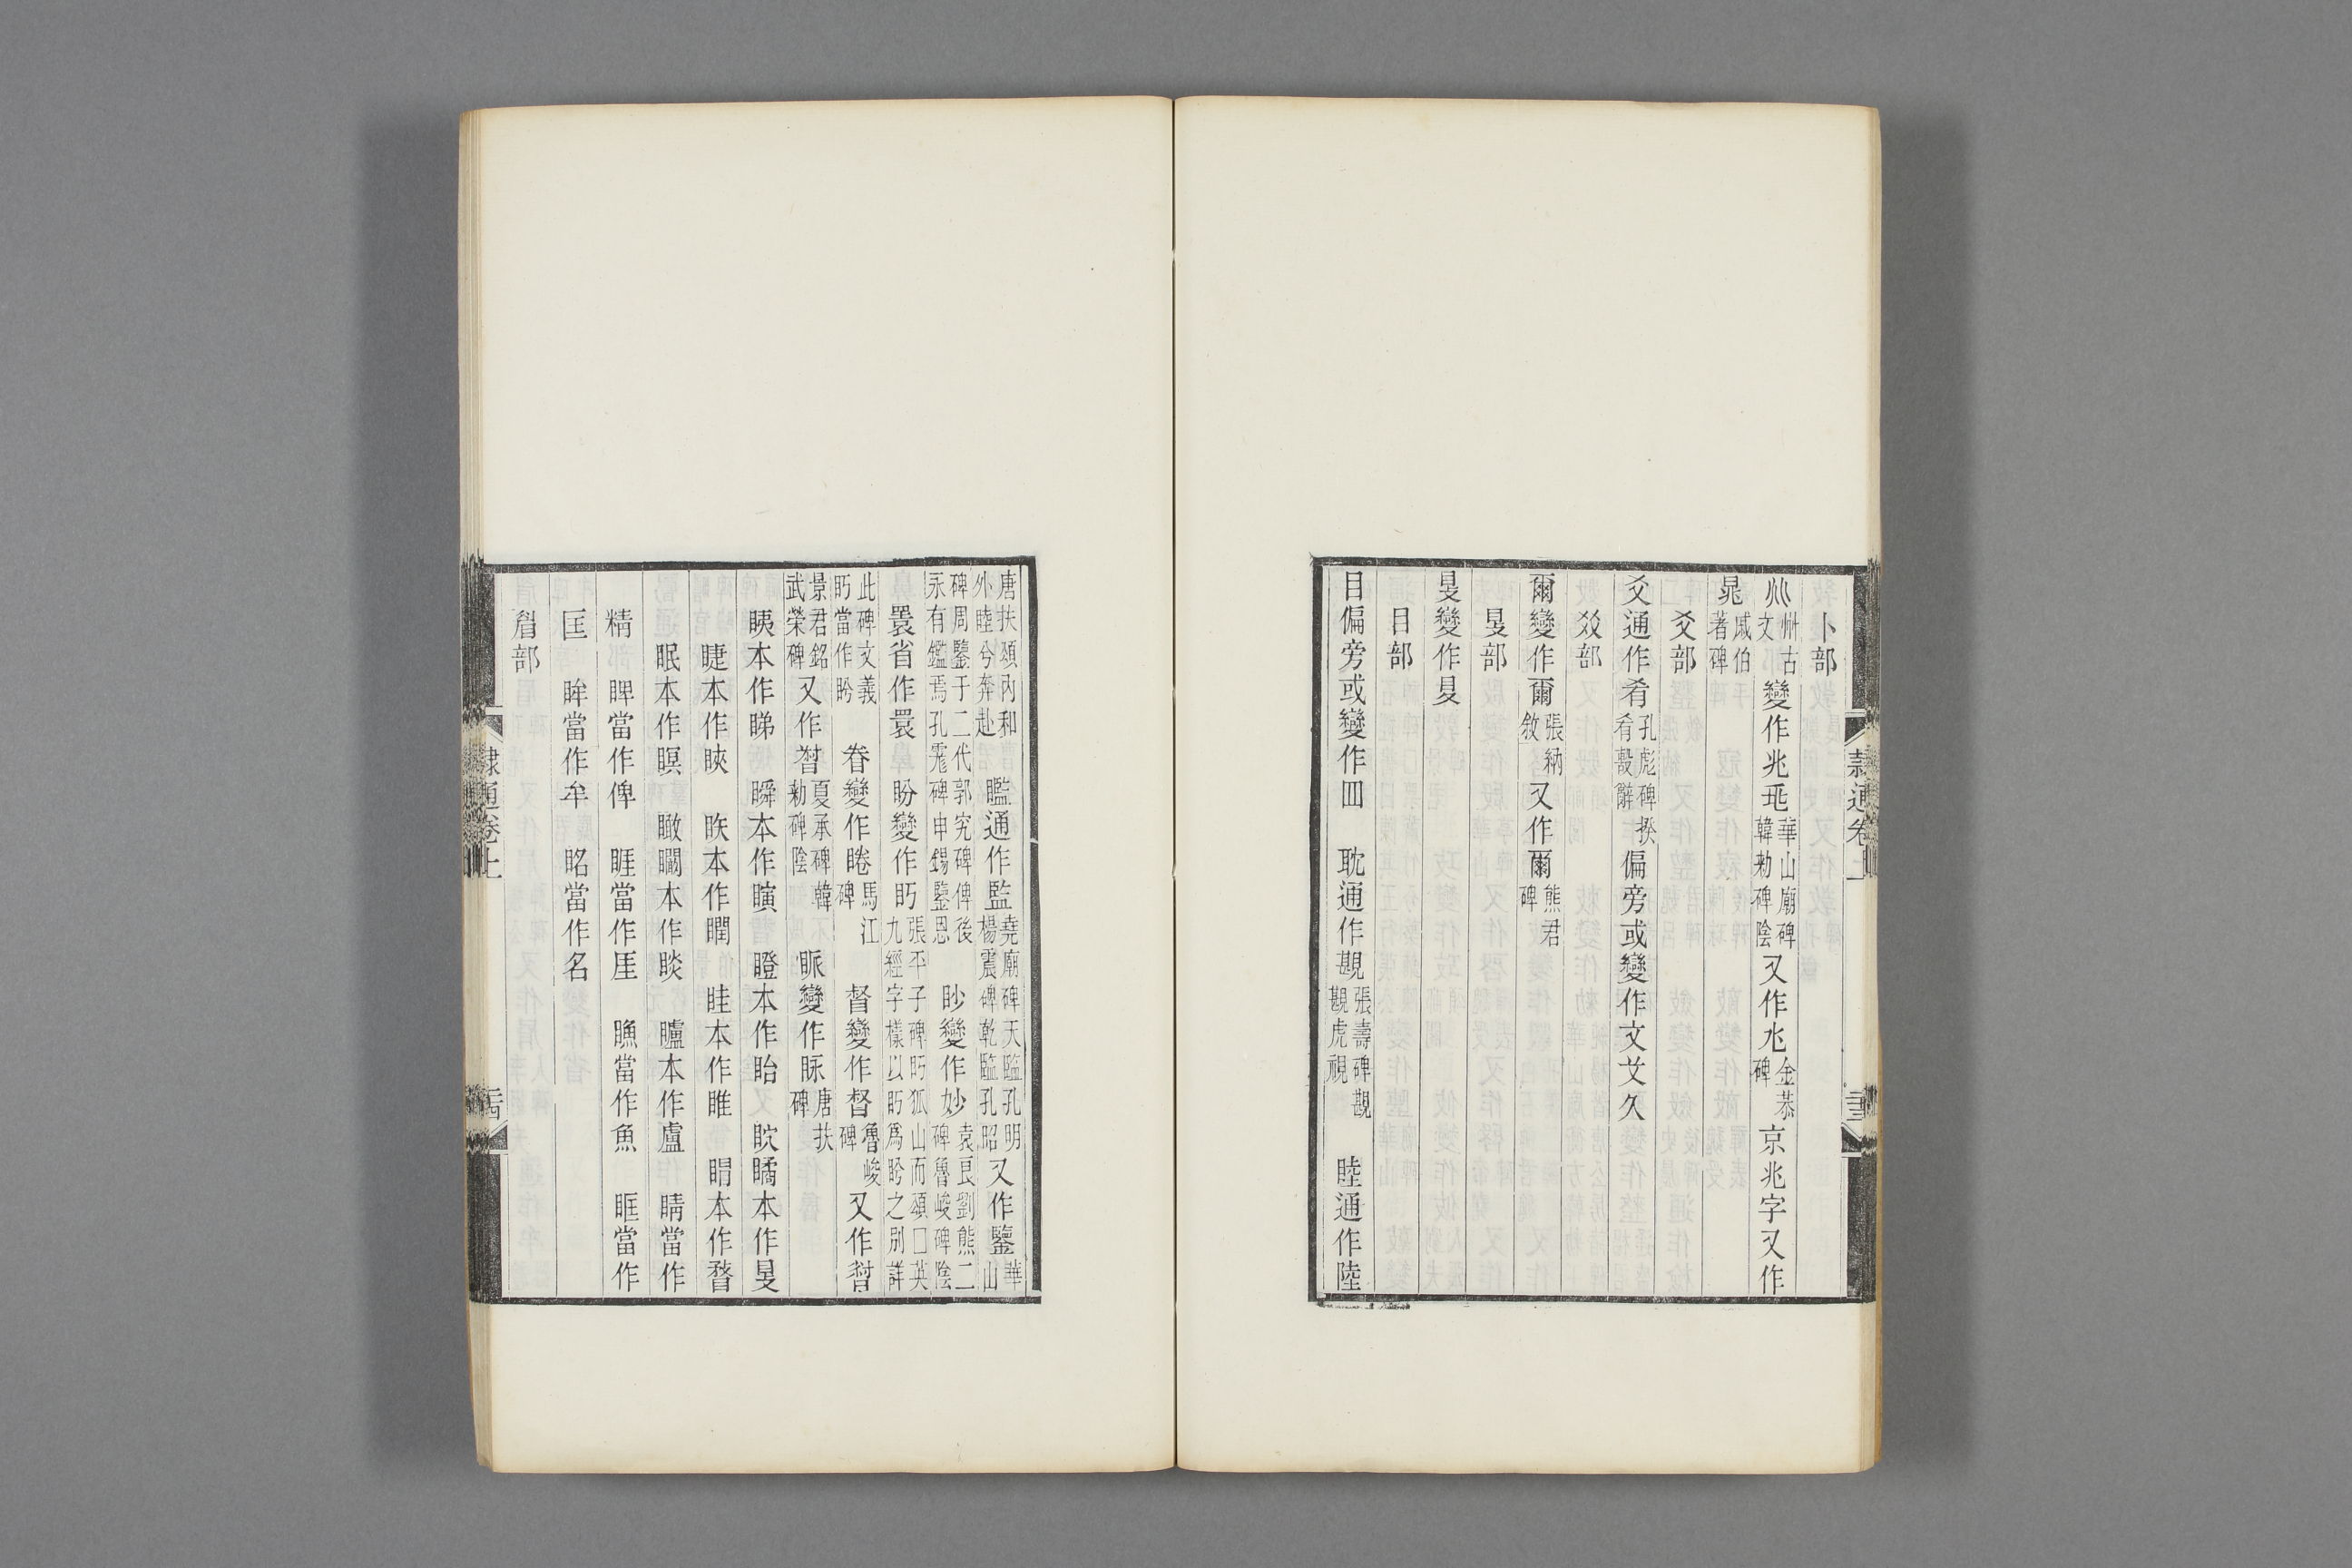 卜部
𠧞州古文變作兆𠧞華山廟碑韓勑碑陰又作𠧞金恭碑京兆字又作
晁戚伯著碑
爻部
爻通作肴孔彪碑揆肴𣪠辭偏旁或變作文攵久
㸚部
爾變作爾張納敘又作爾熊君碑
𥄎部
𥄎變作夐
目部
目偏旁或變作罒　耽通作覩張壽碑覩覩虎視　睦通作陸
隸通卷上
唐扶頌內和外睦兮奔赴　𥌈通作監堯廟碑天臨孔明楊震碑乾監孔昭又作鑒華山
碑周鑒于二代郭究碑俾後永有鑑焉孔霓碑申錫鑒恩　眇變作妙袁良劉熊二碑魯峻碑陰
瞏省作睘　盼變作眄張平子碑眄狐山而頌囗英九經字樣以眄爲盻之別詳
此碑文義眄當作盻　眷變作睠馬江碑　督變作督魯峻碑又作𥇍
景君銘武榮碑又作𥇍夏承碑韓勑碑陰　脈變作脉唐扶碑
睇本作睇　瞬本作瞚　瞪本作眙　眩矞本作𥄎
睫本作䀹　眣本作瞤　眭本作睢　睸本作瞀
眠本作瞑　瞰矙本作睒　矑本作盧　睛當作
精　睥當作俾　睚當作厓　䁩當作魚　眶當作
匡　眸當作牟　眳當作名
眉部
隸通卷上